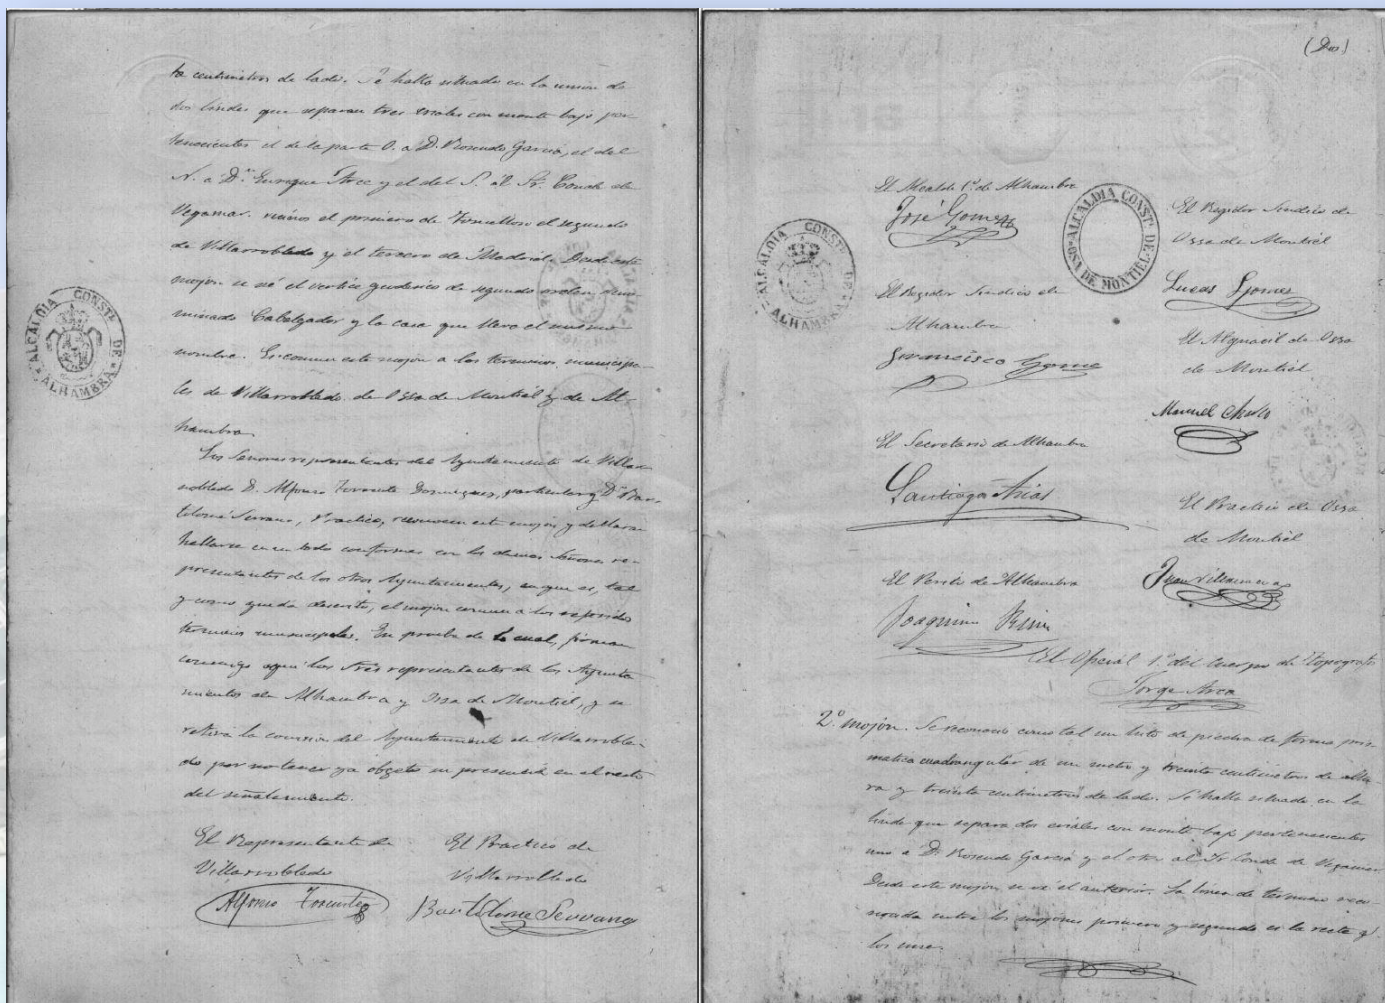 ta centimetros de lado. Se halla situado en la union de
dos lindes que separan tres eriales con monte bajo per-
tenecientes el de la parte O. a D. Rosendo Garcia, el del
N. a D.n Enrique Arce y el del S. al Sr. Conde de
Vegamar. vecinos el primero de Tomelloso el segundo
de Villarrobledo y el tercero de Madrid. Desde este
mojon se vé el vertice geodesico de segundo orden deno-
minado Cabalgador y la casa que lleva el mismo
nombre. Es comun este mojon a los terminos municipa-
les de Villarrobledo, de Ossa de Montiel y de Al-
hambra.
Los Señores representantes del Ayuntamiento de Villar-
robledo D. Alfonso Torrente particular y D. Bar-
tolomé Serrano, Practico, reconocen este mojon y declaran
hallarse en un todo conformes con los demas Señores re-
presentantes de los otros Ayuntamientos, en que es, tal
y como queda descrito, el mojon comun a los expresados
terminos municipales. En prueba de lo cual, firman
conmigo aqui los tres representantes de los Ayunta-
mientos de Alhambra y Ossa de Montiel, y se
retira la comision del Ayuntamiento de Villarroble-
do por no tener ya objeto su presencia en el resto
del señalamiento.
El Representante de
Villarrobledo
Alfonso Torrente
El Practico de
Villarrobledo
Bartolome Serrano
ALCALDIA CONST.L DE
ALHAMBRA
(Dos)
El Alcalde 1.º de Alhambra
José Gomez
El Regidor Sindico de
Alhambra
Francisco Gomez
El Secretario de Alhambra
Santiago Arias
El Perito de Alhambra
Joaquin
ALCALDIA CONST.L DE
ALHAMBRA
ALCALDIA CONST.L DE
OSA DE MONTIEL
El Regidor Sindico de
Ossa de Montiel
Lucas Gomez
El Alguacil de Ossa
de Montiel
Manuel
El Practico de Ossa
de Montiel
Juan Villanueva
El Oficial 1.º del Cuerpo de Topografos
Jorge Arca
2.º mojón. Se reconocio como tal un hito de piedra de forma pris-
matica cuadrangular de un metro y treinta centimetros de altu-
ra y treinta centimetros de lado. Se halla situado en la
linde que separa dos eriales con monte bajo pertenecientes
uno a D. Rosendo Garcia y el otro al Sr. Conde de Vegamar
Desde este mojon se vé el anterior. La linea de termino reco-
nocida entre los mojones primero y segundo es la recta q.e
los une.